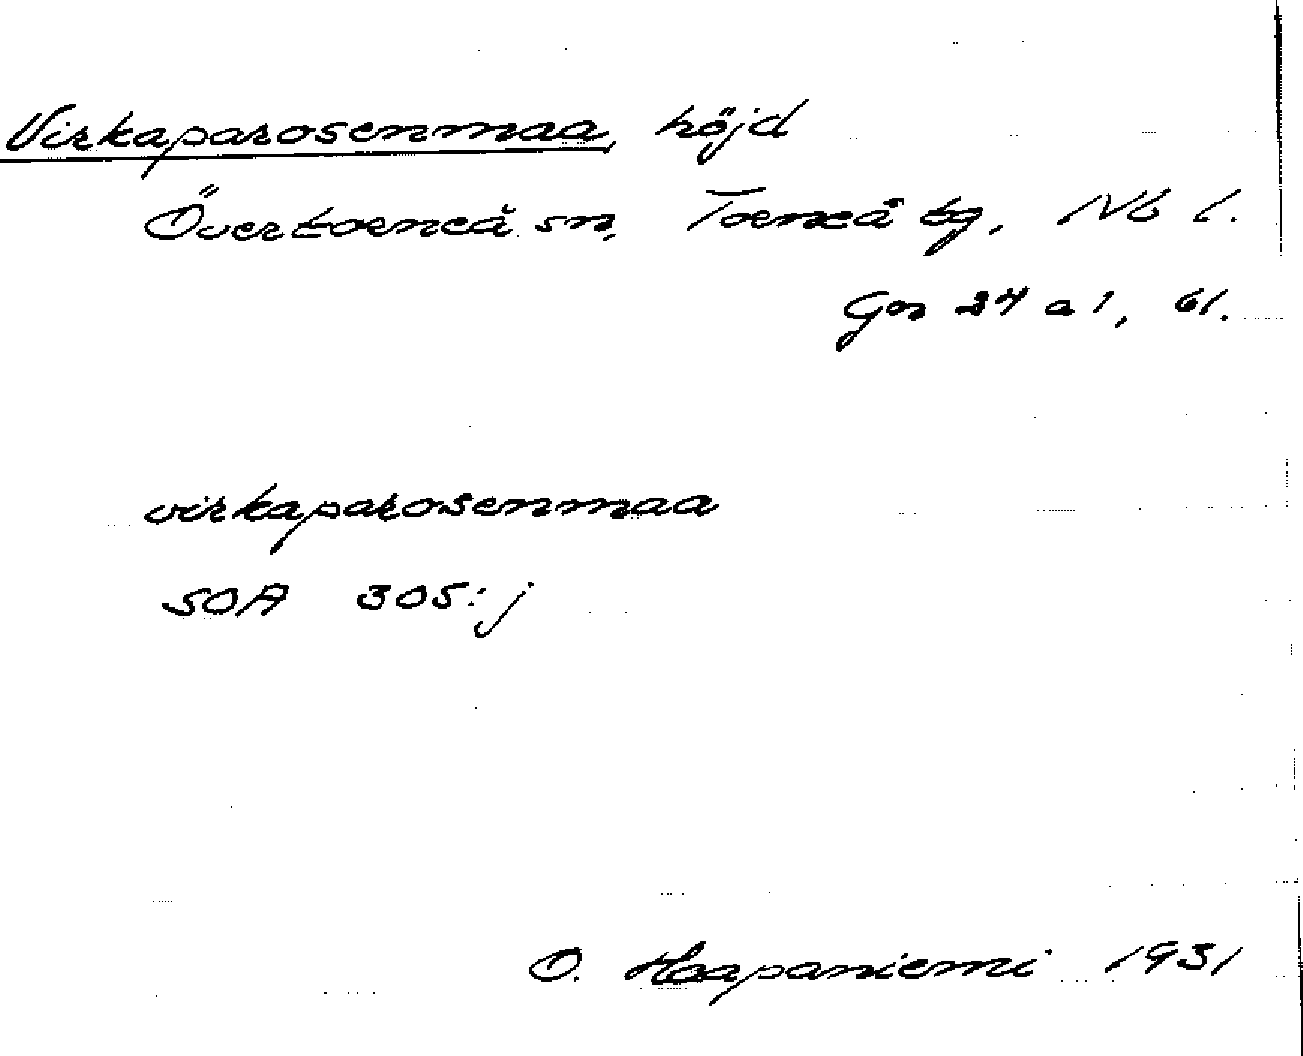 Virkaparosenmaa, höjd
Övertorneå sn, Torneå tg, Nb l.
Gn 24 a 1, 61.
virkaparosenmaa
SOA 305: j
O. Haapaniemi 1931